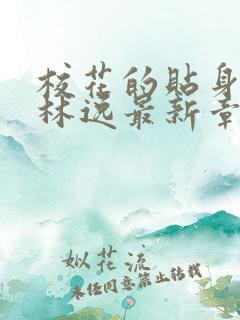 校花的貼身
林逸最新章
姒花流
未经同意禁止转载